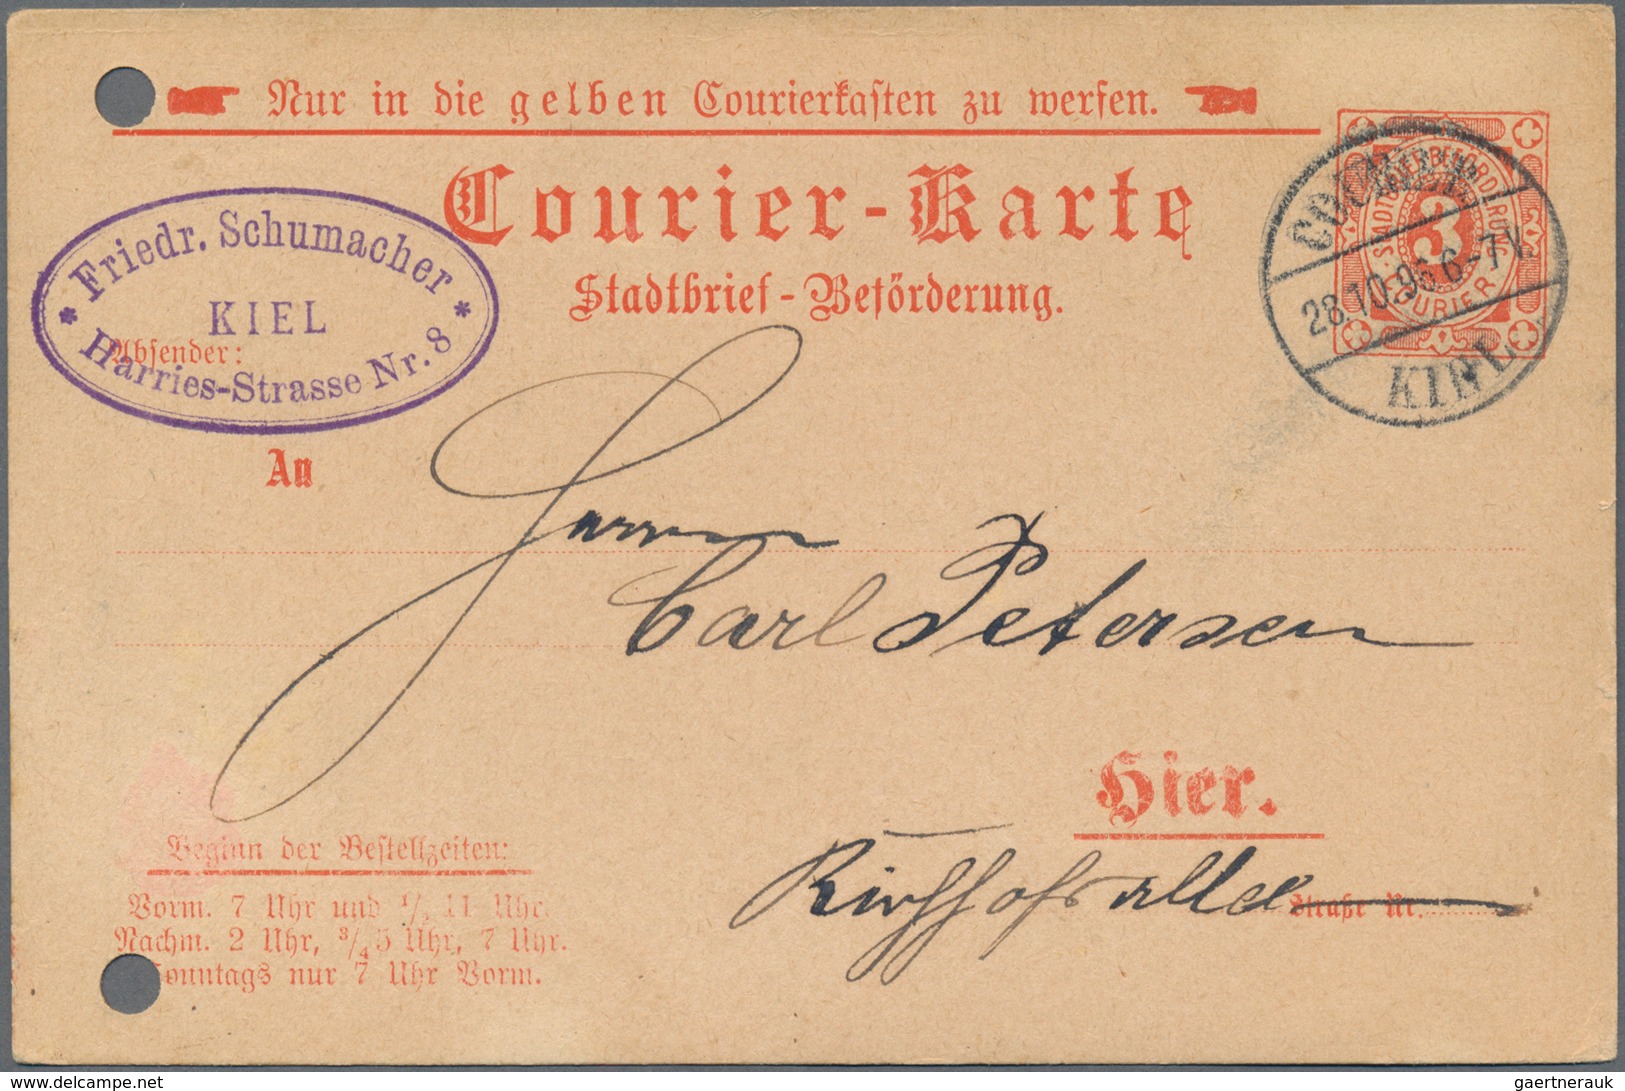 Nur in die gelben Courierkasten zu werfen.
Courier-Karte
Stadtbrief-Beförderung.
Friedr. Schumacher
KIEL
Harries-Strasse Nr. 8
Absender:
STADTBRIEFBEFÖRDERUNG
3
COURIER
COURIER
28.10.96 6-7 N.
KIEL
An
Herrn
Carl Petersen
Hier.
Kirchhofsallee Straße Nr.
Beginn der Bestellzeiten:
Vorm. 7 Uhr und 1/2 11 Uhr.
Nachm. 2 Uhr, 3/4 5 Uhr, 7 Uhr.
Sonntags nur 7 Uhr Vorm.
www.delcampe.net
gaertnerauk